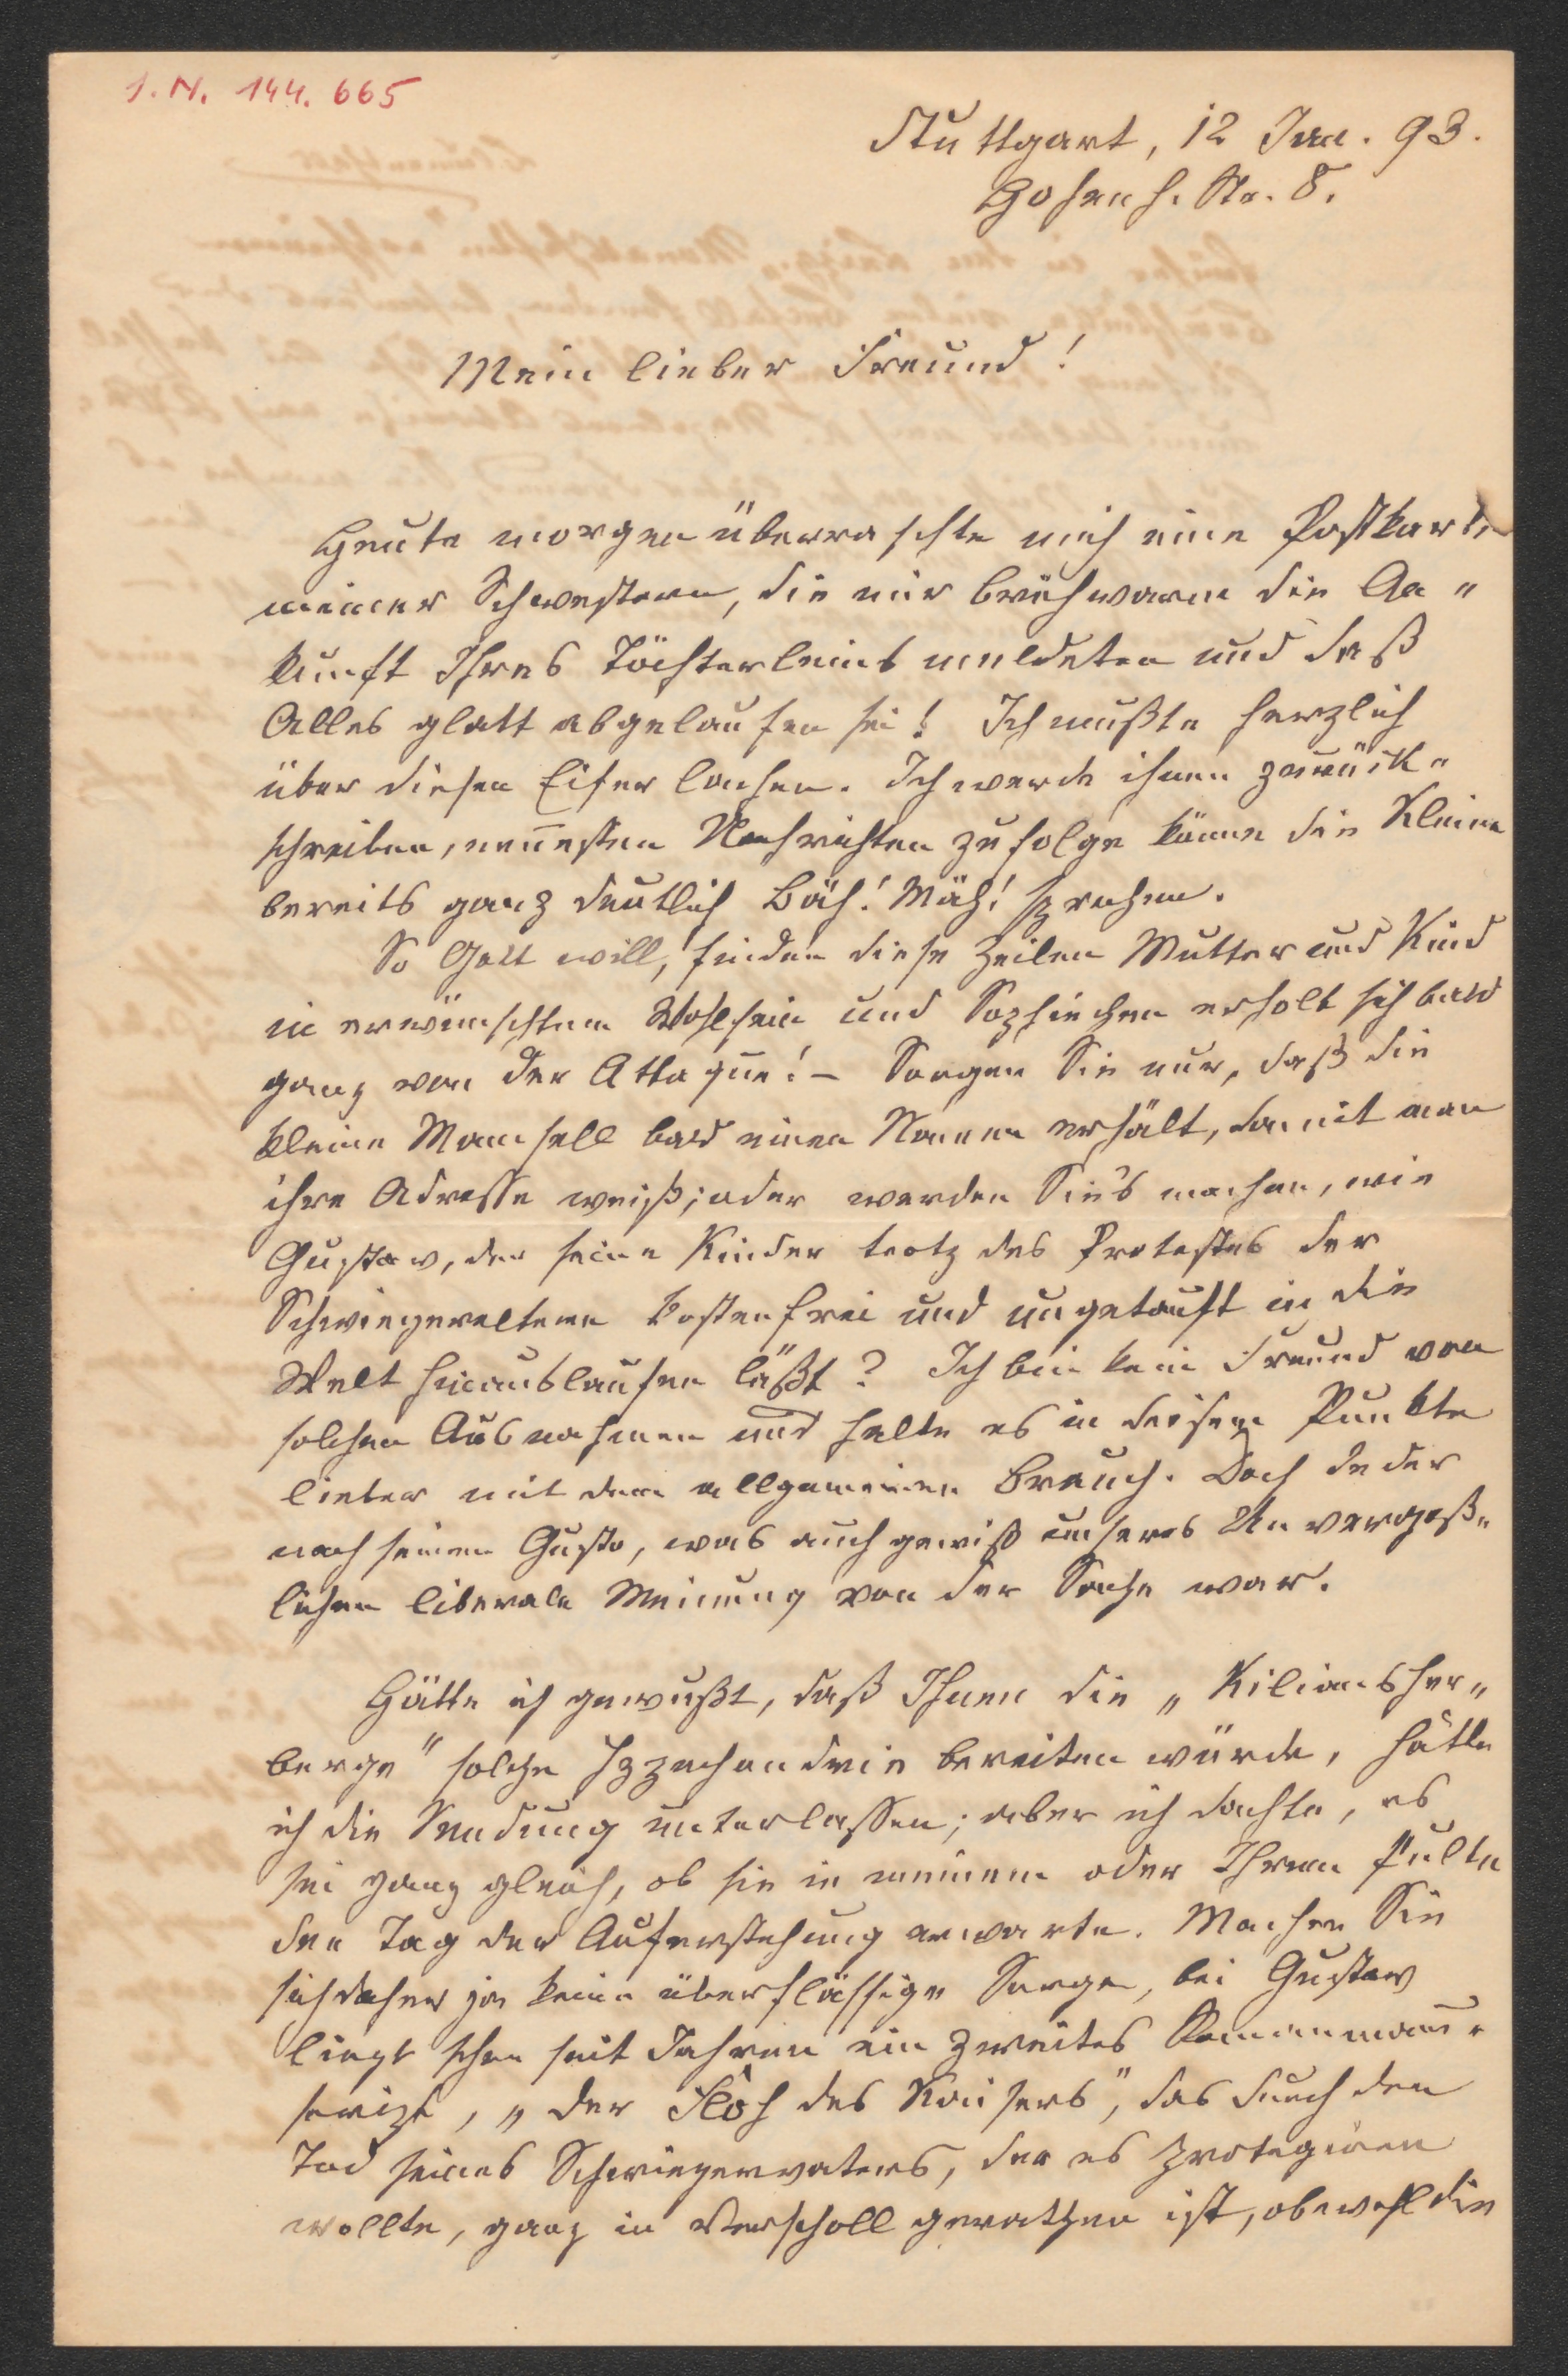 I. N. 144.665
Stuttgart, 12 Jan. 93.
Hohenh. Str. 8.
Mein lieber Freund!
Heute morgen überraschte mich eine Postkarte
meiner Schwestern, die mir brühwarm die An„
kunft Ihres Töchterleins meldeten und daß
Alles glatt abgelaufen sei! Ich mußte herzlich
über diesen Eifer lachen. Ich werde ihnen zurück„
schreiben, neuesten Nachrichten zufolge könne die Kleine
bereits ganz deutlich Bäh! Mäh! sprechen.
So Gott will, finden diese Zeilen Mutter und Kind
in erwünschtem Wohlsein und Sophiechen erholt sich bald
ganz von der Attaque! – Sorgen Sie nur, daß die
kleine Mamsell bald einen Namen erhält, damit man
ihre Adresse weiß; oder werden Sie's machen, wie
Gustav, der seine Kinder trotz des Protestes der
Schwiegereltern kostenfrei und ungetauft in die
Welt hinauslaufen läßt? Ich bin kein Freund von
solchen Ausnahmen und halte es in diesem Punkte
lieber mit dem allgemeinen Brauch. Doch Jeder
nach seinem Gusto, was auch gewiß unseres Unvergeß„
lichen liberale Meinung von der Sache war.
Hätte ich gewußt, daß Ihnen die „Kiliansher„
berge" solche bereiten würde, hätte
ich die Sendung unterlassen; aber ich dachte, es
sei ganz gleich, ob sie in meinem oder Ihrem Pulte
den Tag der Auferstehung erwarte. Machen Sie
sich daher ja keine überflüssige Sorge, bei Gustav
liegt schon seit Jahren ein zweites Romanmanu„
skript, „der Floh des Kaisers", das durch den
Tod seines Schwiegervaters, der es protegiren
wollte, ganz in Verscholl gerathen ist, obwohl die